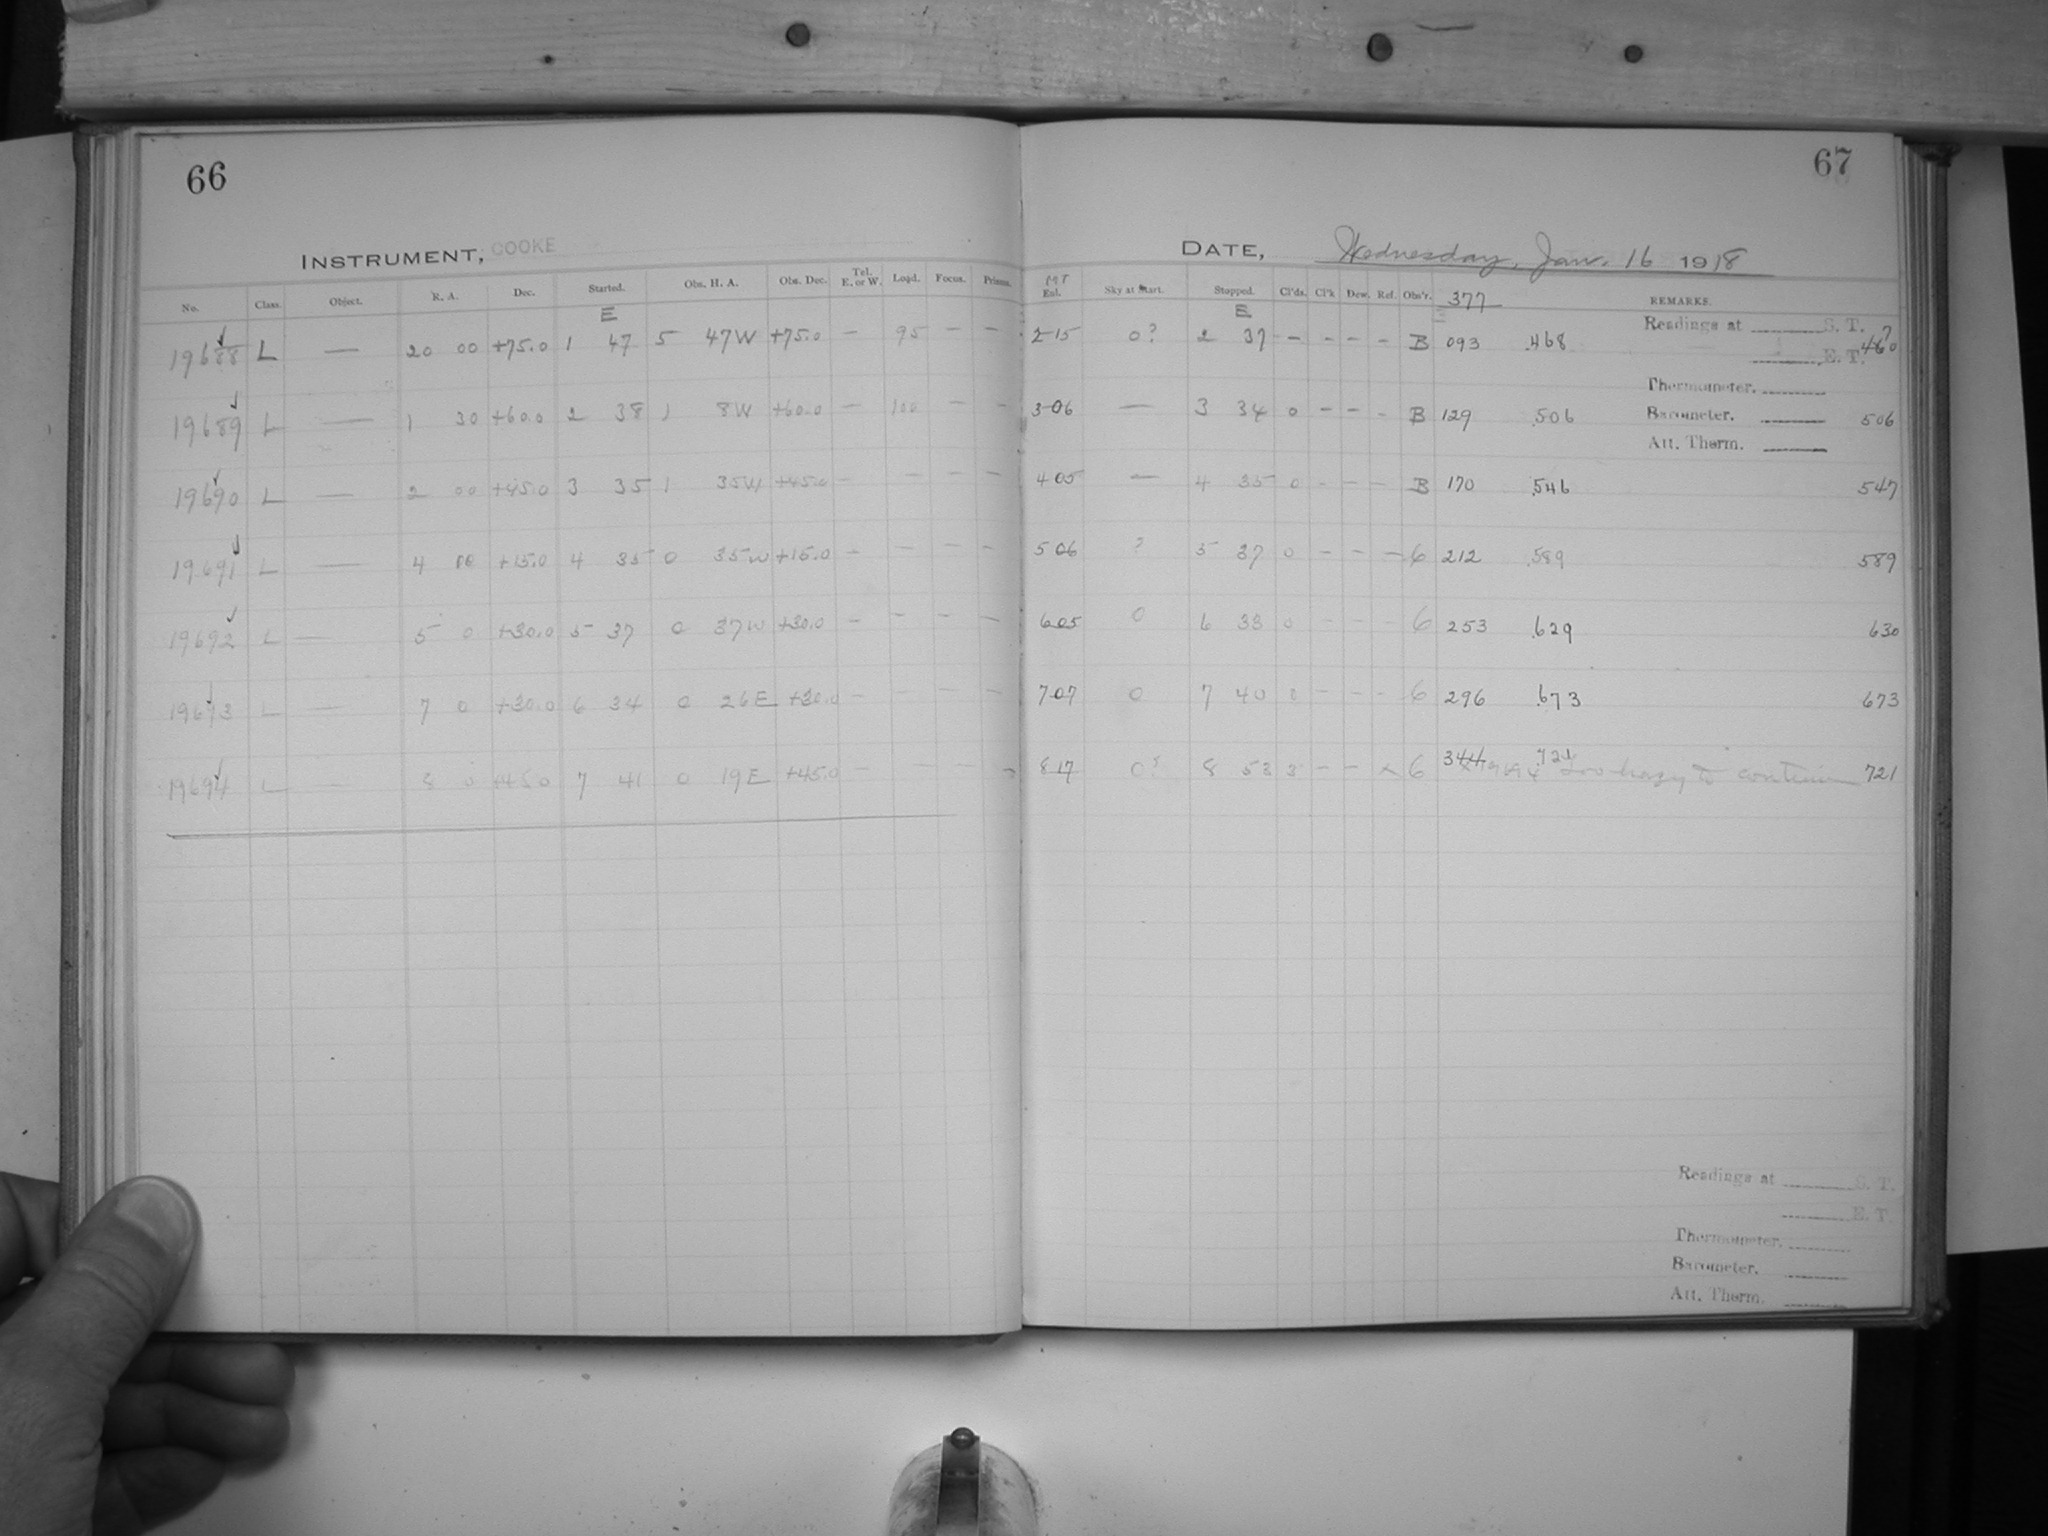 66
INSTRUMENT, COOKE
No. Class. Object. R. A. Dec. Started. Obs. H. A. Obs. Dec. Tel. E. or W. Load. Focus. Prisms.
E
19688 L — 20 00 +75.0 1 47 5 47W +75.0 — 95 — —
19689 L — 1 30 +60.0 2 38 1 8W +60.0 — 100 — —
19690 L — 2 00 +45.0 3 35 1 35W +45.0 — — — —
19691 L — 4 00 +15.0 4 35 0 35W +15.0 — — — —
19692 L — 5 0 +30.0 5 37 0 37W +30.0 — — — —
L — 7 0 +30.0 6 34 0 26E +30.0 — — — —
19694 L — 8 0 +45.0 7 41 0 19E +45.0 — — — —
67
DATE, Wednesday, Jan. 16 1918
MT
Eql. Sky at Start. Stopped. Cl'ds. Cl'k Dew. Ref. Obs'r. 377 REMARKS.
E
Readings at S. T.
2 15 0? 2 37 — — — — B 093 .468
E. T.
Thermometer.
3 06 — 3 34 0 — — — B 129 .506 Barometer. 506
Att. Therm.
4 05 — 4 35 0 — — — B 170 .546 547
5 06 ? 5 37 0 — — — 6 212 .589 589
6 05 0 6 33 0 — — — 6 253 .629 630
7 07 0 7 40 0 — — — 6 296 .673 673
8 17 0? 8 53 3 — — x 6 344 .721 too hazy to continue 721
Readings at S. T.
E. T.
Thermometer.
Barometer.
Att. Therm.